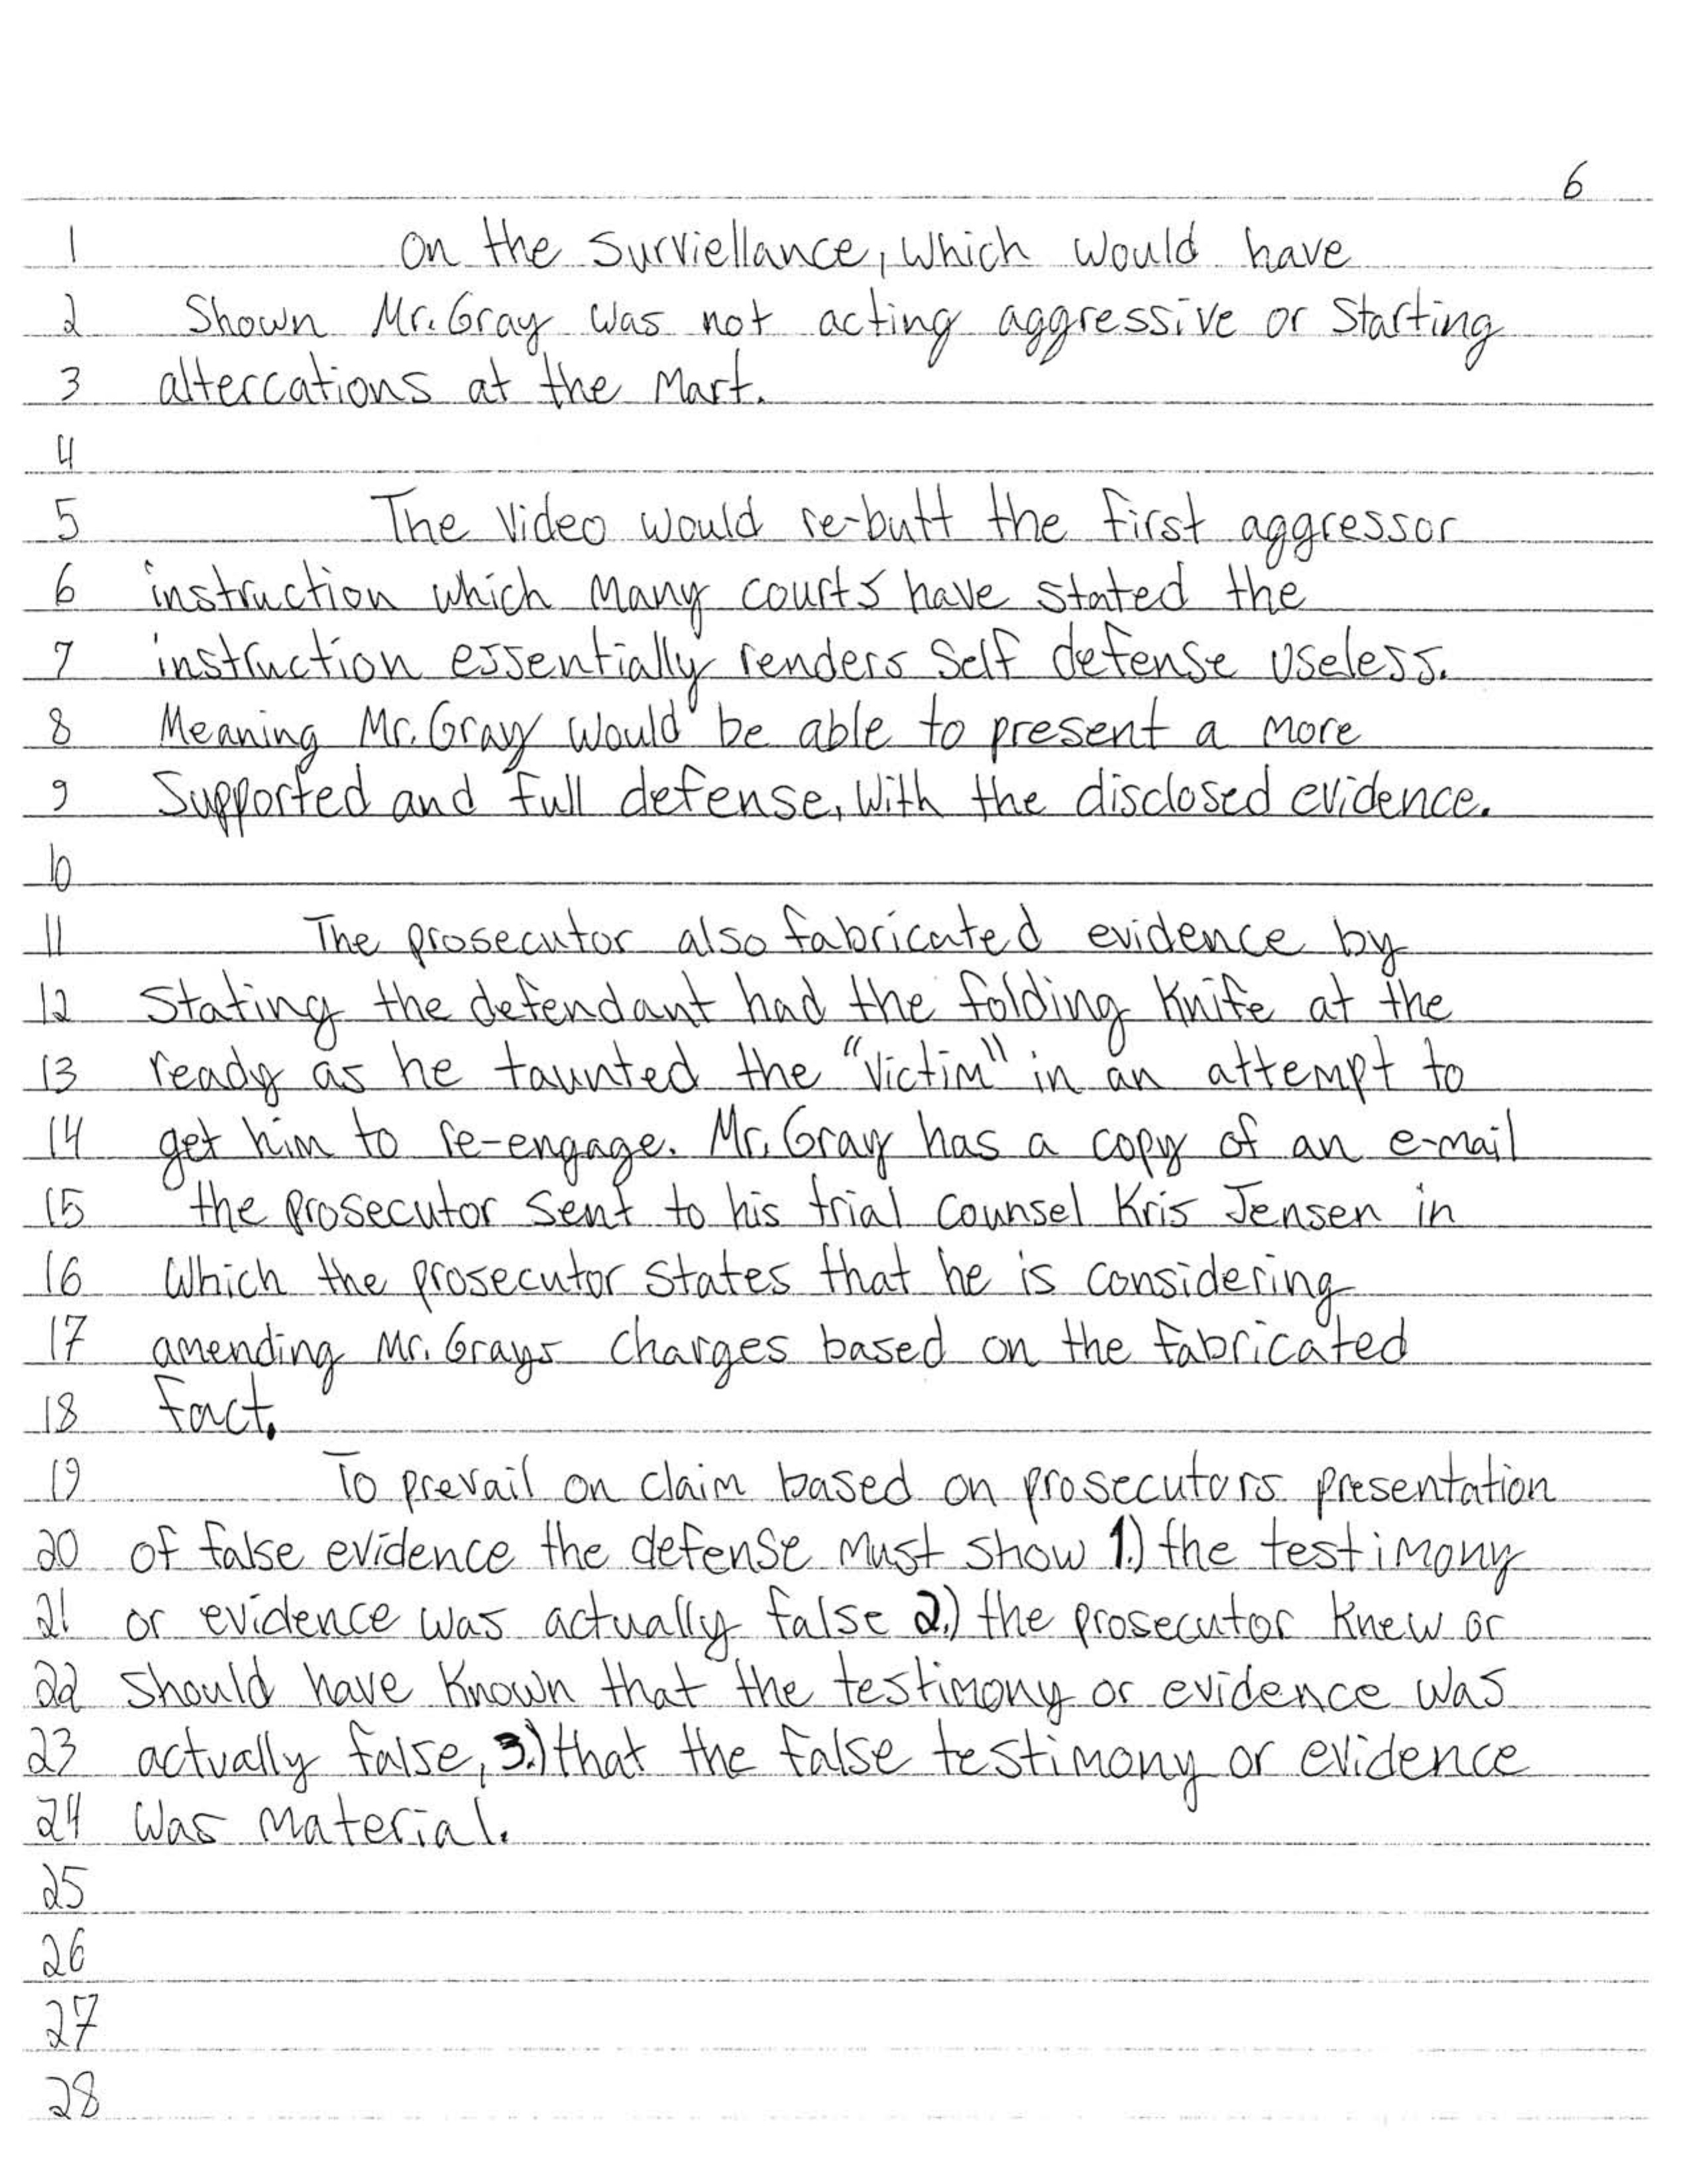 6
1 on the surviellance, which would have
2 Shown Mr. Gray was not acting aggressive or Starting
3 altercations at the Mart.
4
5 The Video would re-butt the first aggressor
6 instruction which Many courts have stated the
7 instruction essentially renders Self defense Useless.
8 Meaning Mr. Gray would be able to present a More
9 Supported and full defense, With the disclosed evidence.
10
11 The prosecutor also fabricated evidence by
12 Stating the defendant had the folding Knife at the
13 ready as he taunted the "Victim" in an attempt to
14 get him to re-engage. Mr. Gray has a copy of an e-mail
15 the prosecutor sent to his trial counsel Kris Jensen in
16 Which the prosecutor States that he is considering
17 amending Mr. Grays charges based on the fabricated
18 fact.
19 To prevail on claim based on prosecutors presentation
20 of false evidence the defense Must show 1.) the testimony
21 or evidence was actually false 2.) the prosecutor Knew or
22 should have Known that the testimony or evidence was
23 actually false, 3.) that the false testimony or evidence
24 Was Material.
25
26
27
28